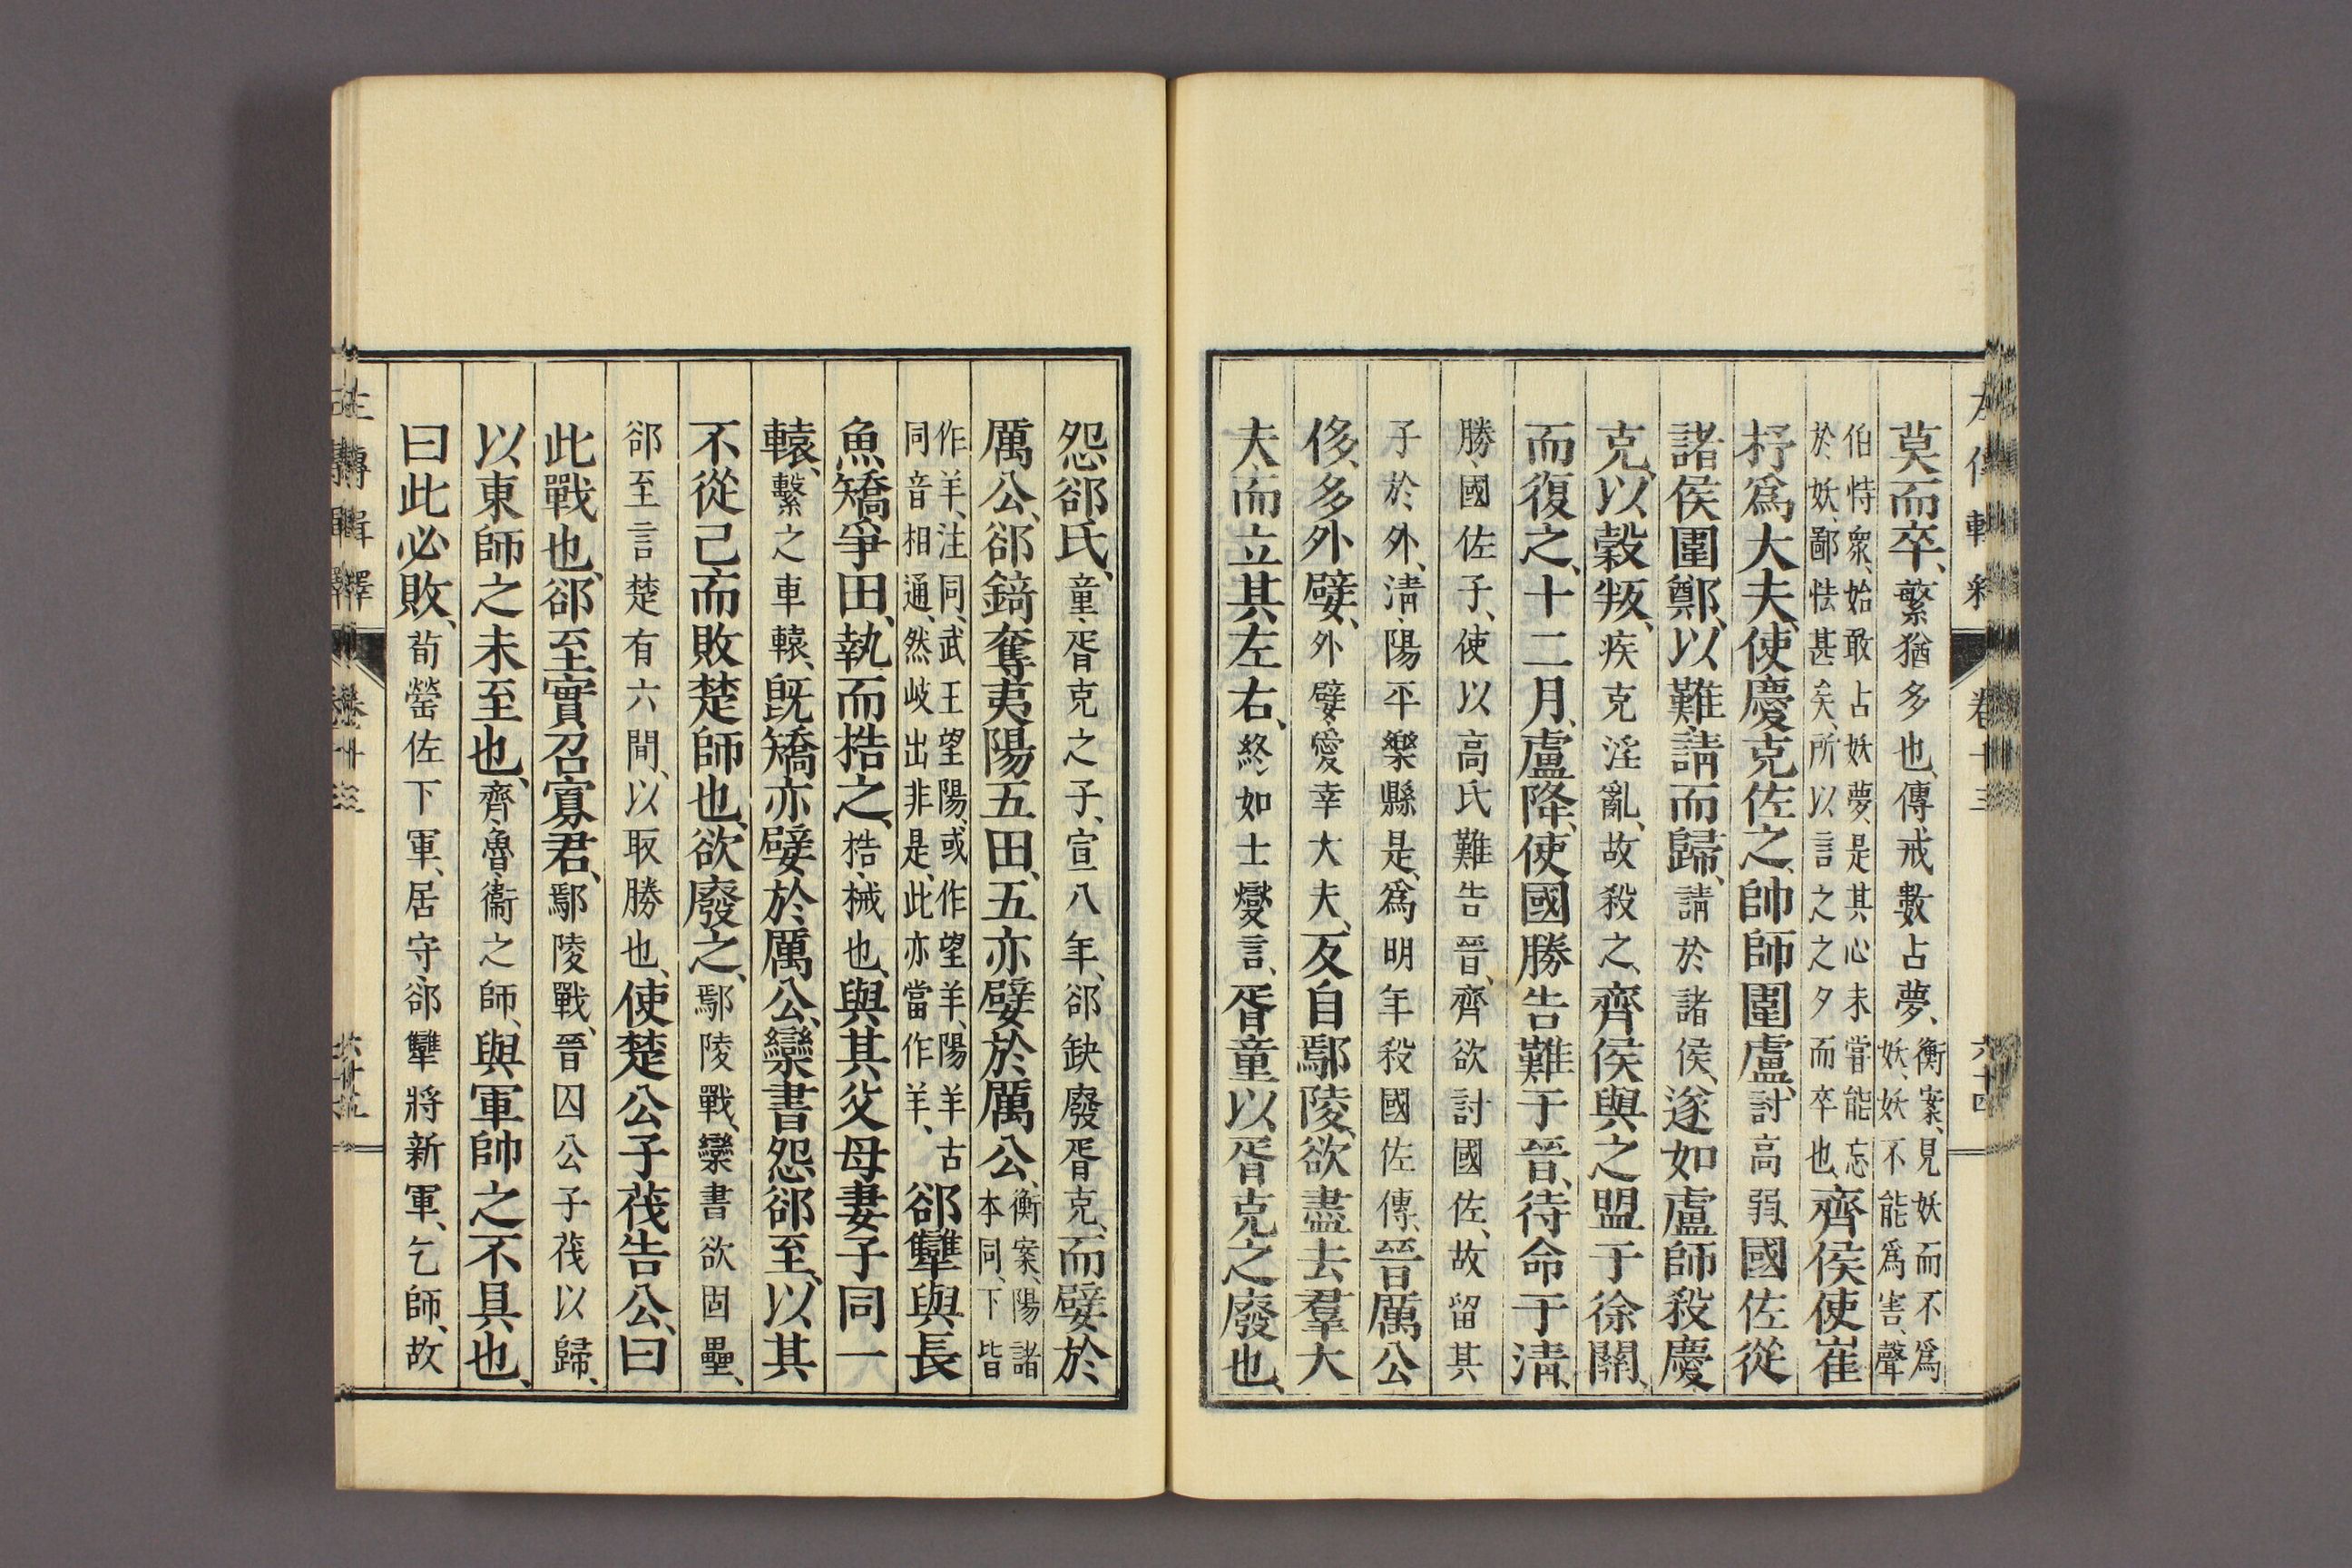 莫而卒、繁猶多也、傳戒數占夢、衡案、見妖而不爲妖、妖不能爲害、聲
伯恃衆、始敢占妖夢、是其心未嘗能忘於妖、鄙怯甚矣、所以言之之夕而卒也、齊侯使崔
杼爲大夫、使慶克佐之、帥師圍盧、討高弱、國佐從
諸侯圍鄭、以難請而歸、請於諸侯、遂如盧師殺慶
克、以穀叛、疾克淫亂、故殺之、齊侯與之盟于徐關、
而復之、十二月、盧降、使國勝告難于晉、待命于淸、
勝、國佐子、使以高氏難告晉、齊欲討國佐、故留其
子於外、淸、陽平樂縣是、爲明年殺國佐傳、晉厲公
侈、多外嬖、外嬖、愛幸大夫、反自鄢陵、欲盡去羣大
夫、而立其左右、終如士燮言、胥童以胥克之廢也、
怨郤氏、童、胥克之子、宣八年、郤缺廢胥克、而嬖於
厲公、郤錡奪夷陽五田、五亦嬖於厲公、衡案、陽諸本同、下皆
作羊、注同、武王望陽、或作望羊、陽羊古同音相通、然岐出非是、此亦當作羊、郤犨與長
魚矯爭田、執而梏之、梏、械也、與其父母妻子同一
轅、繫之車轅、旣矯亦嬖於厲公、欒書怨郤至、以其
不從己而敗楚師也、欲廢之、鄢陵戰、欒書欲固壘、
郤至言楚有六間、以取勝也、使楚公子茷告公、曰
此戰也、郤至實召寡君、鄢陵戰、晉囚公子茷以歸、
以東師之未至也、齊、魯、衞之師、與軍帥之不具也、
曰此必敗、荀罃佐下軍、居守、郤犨將新軍、乞師、故